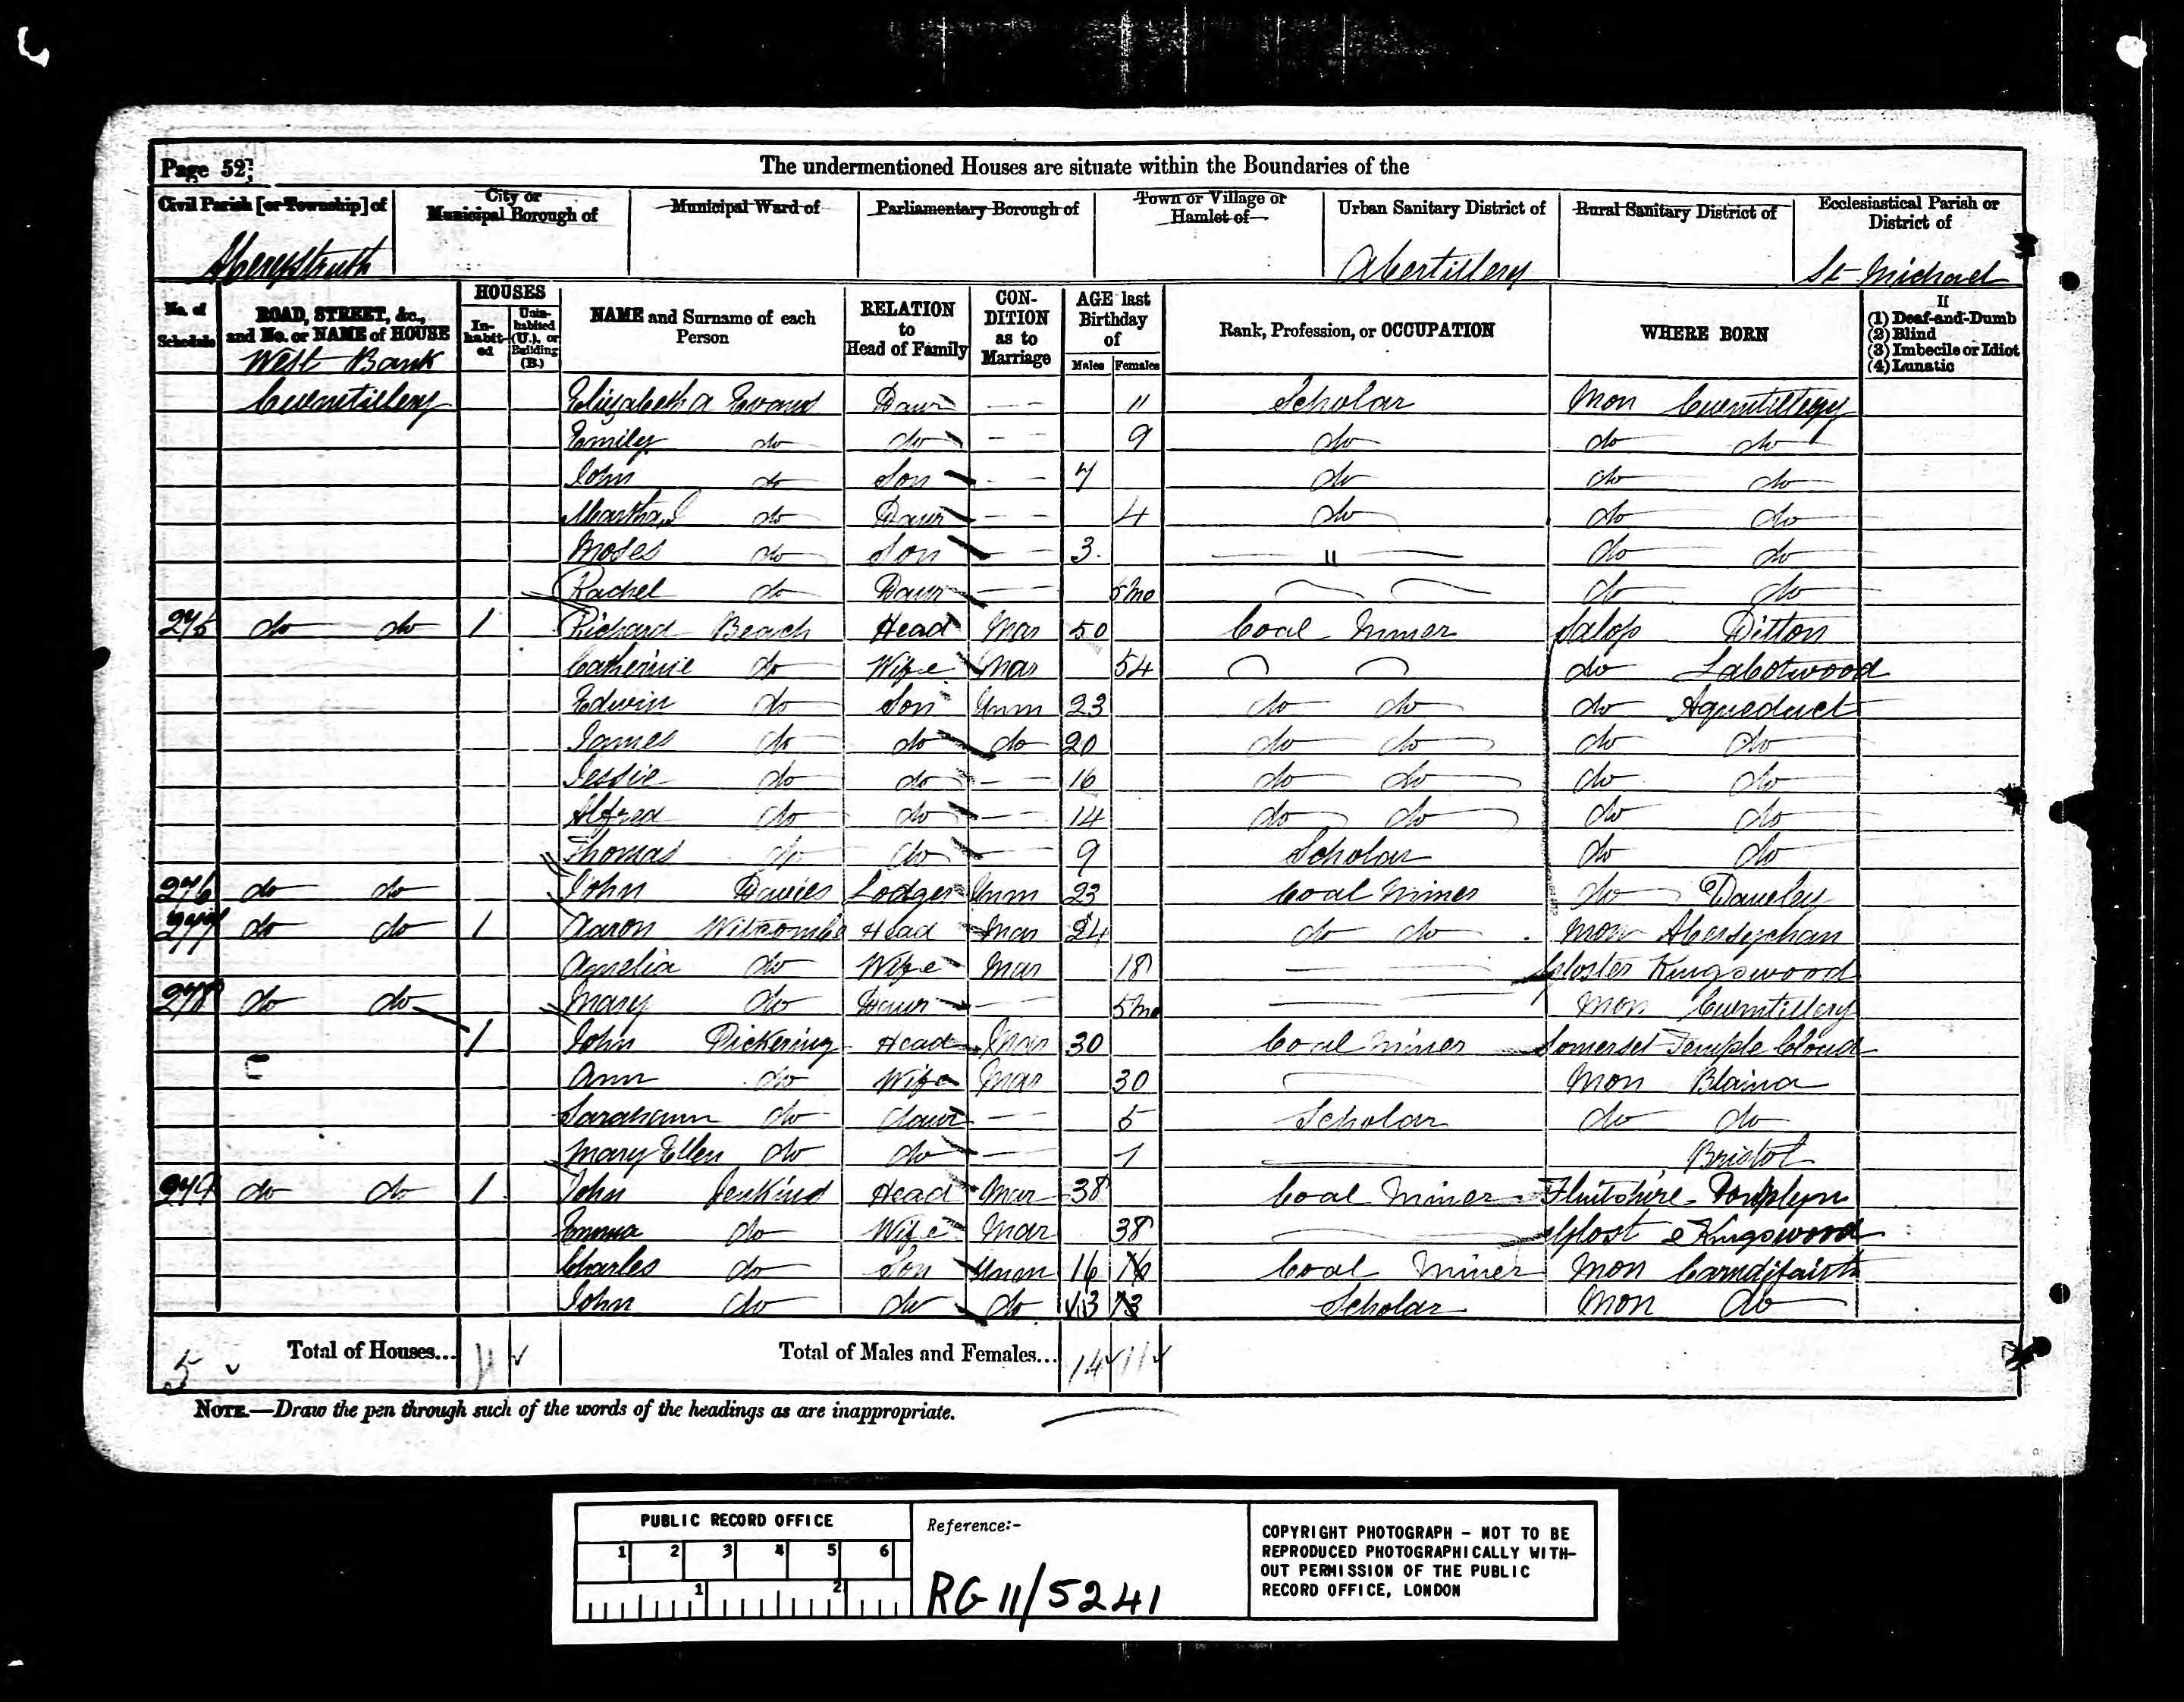 Page 52
The undermentioned Houses are situate within the Boundaries of the
Civil Parish [or Township] of
City or Municipal Borough of
Municipal Ward of
Parliamentary Borough of
Town or Village or Hamlet of
Urban Sanitary District of
Rural Sanitary District of
Ecclesiastical Parish or District of
Aberystruth Abertillery St Michael
No. of Schedule
ROAD, STREET, &c., and No. or NAME of HOUSE
HOUSES
Inhabited
Uninhabited (U.), or Building (B.)
NAME and Surname of each Person
RELATION to Head of Family
CONDITION as to Marriage
AGE last Birthday of
Males Females
Rank, Profession, or OCCUPATION
WHERE BORN
If
(1) Deaf-and-Dumb
(2) Blind
(3) Imbecile or Idiot
(4) Lunatic
West Bank
Cwmtillery Elizabeth A Evans Daur 11 Scholar Mon Cwmtillery
Emily do do 9 do do do
John do Son 7 do do do
Martha J do Daur 4 do do do
Moses do Son 3 " do do
Rachel do Daur 5mo do do
275 do do 1 Richard Beach Head Mar 50 Coal Miner Salop Ditton
Catherine do Wife Mar 54 do Labotwood
Edwin do Son Unm 23 do do do Aqueduct
James do do do 20 do do do do
Jessie do do 16 do do do do
Alfred do do 14 do do do do
Thomas do do 9 Scholar do do
276 do do John Davies Lodger Unm 23 Coal Miner do Dawley
277 do do 1 Aaron Witcombe Head Mar 24 do do Mon Abersychan
Amelia do Wife Mar 18 Gloster Kingswood
278 do do Mary do Daur 5mo Mon Cwmtillery
1 John Pickering Head Mar 30 Coal Miner Somerset Temple Cloud
Ann do Wife Mar 30 Mon Blaina
Sarahann do daur 5 Scholar do do
Mary Ellen do do 1 Bristol
279 do do 1 John Jenkins Head Mar 38 Coal Miner Flintshire
Emma do Wife Mar 38 Glost Kingswood
Charles do Son Unm 16 16 Coal Miner Mon
John do do do 13 13 Scholar Mon do
5 Total of Houses... Total of Males and Females... 14 11
NOTE.—Draw the pen through such of the words of the headings as are inappropriate.
PUBLIC RECORD OFFICE
1 2 3 4 5 6
1 2
Reference:-
RG 11/5241
COPYRIGHT PHOTOGRAPH - NOT TO BE
REPRODUCED PHOTOGRAPHICALLY WITH-
OUT PERMISSION OF THE PUBLIC
RECORD OFFICE, LONDON